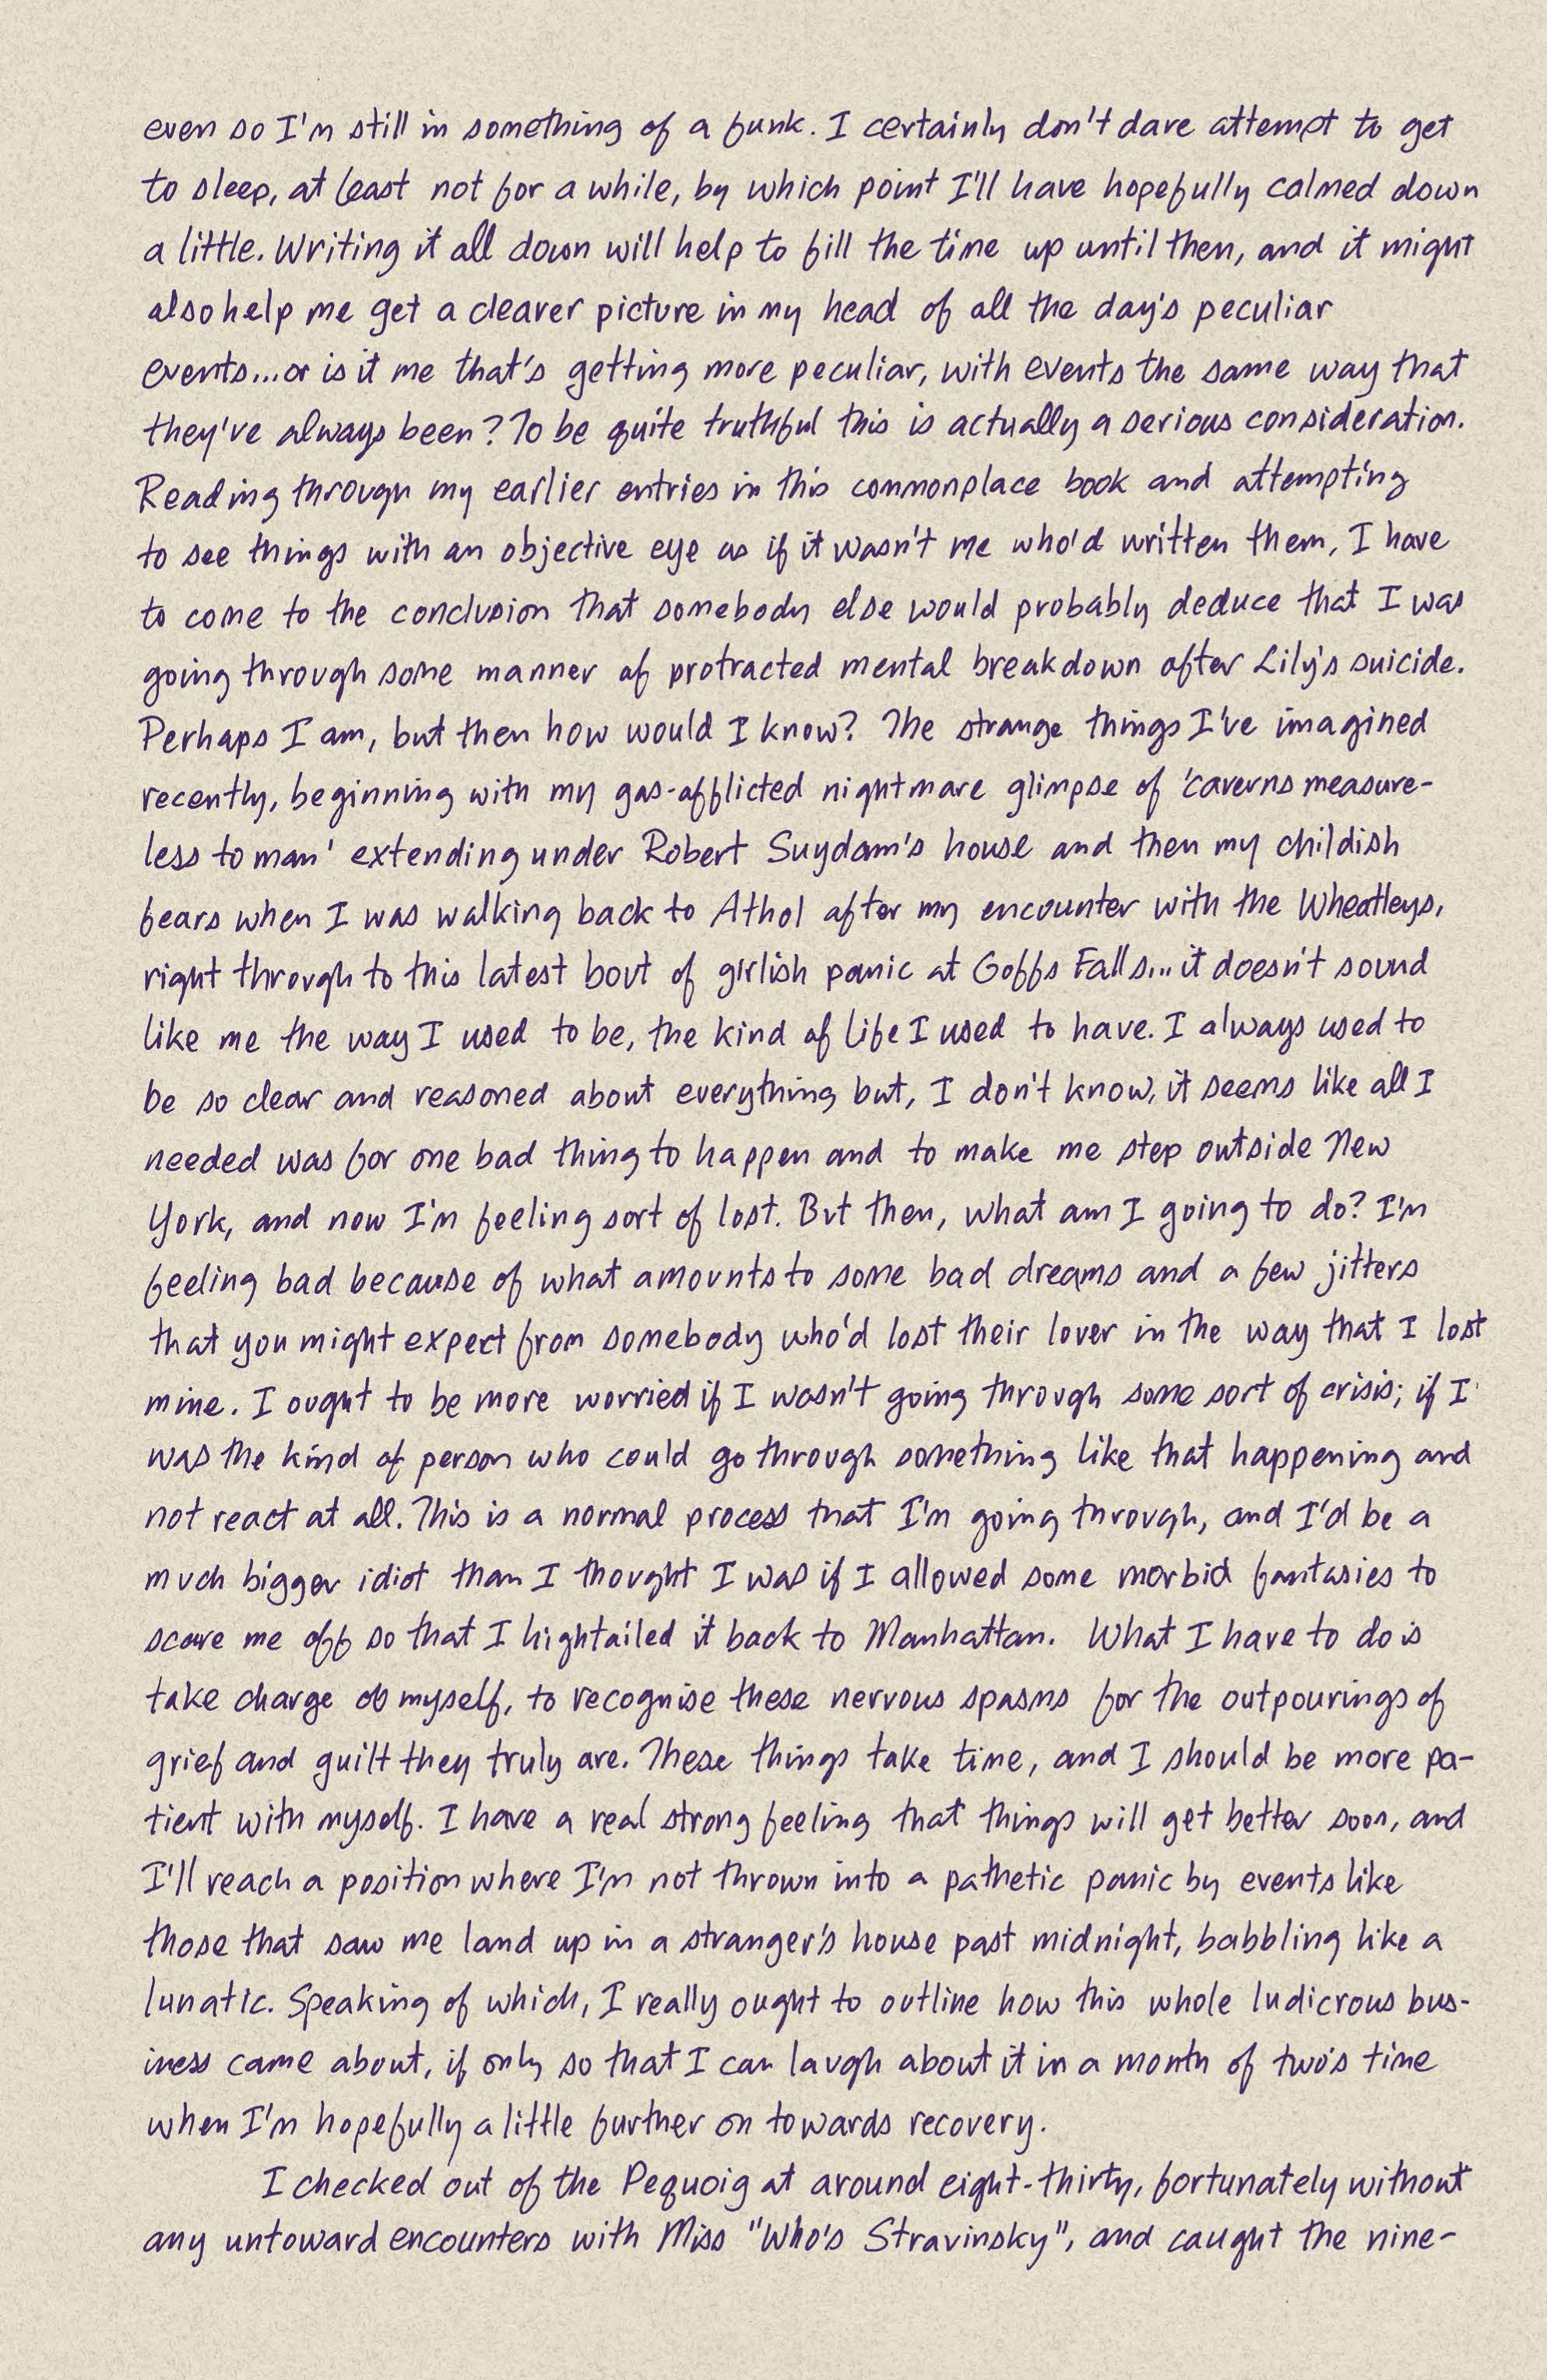 even so I'm still in something of a funk. I certainly don't dare attempt to get
to sleep, at least not for a while, by which point I'll have hopefully calmed down
a little. Writing it all down will help to fill the time up until then, and it might
also help me get a clearer picture in my head of all the day's peculiar
events...or is it me that's getting more peculiar, with events the same way that
they've always been? To be quite truthful this is actually a serious consideration.
Reading through my earlier entries in this commonplace book and attempting
to see things with an objective eye as if it wasn't me who'd written them, I have
to come to the conclusion that somebody else would probably deduce that I was
going through some manner of protracted mental breakdown after Lily's suicide.
Perhaps I am, but then how would I know? The strange things I've imagined
recently, beginning with my gas-afflicted nightmare glimpse of 'caverns measure-
less to man' extending under Robert Suydam's house and then my childish
fears when I was walking back to Athol after my encounter with the Wheatleys,
right through to this latest bout of girlish panic at Goffs Falls... it doesn't sound
like me the way I used to be, the kind of life I used to have. I always used to
be so clear and reasoned about everything but, I don't know, it seems like all I
needed was for one bad thing to happen and to make me step outside New
York, and now I'm feeling sort of lost. But then, what am I going to do? I'm
feeling bad because of what amounts to some bad dreams and a few jitters
that you might expect from somebody who'd lost their lover in the way that I lost
mine. I ought to be more worried if I wasn't going through some sort of crisis; if I
was the kind of person who could go through something like that happening and
not react at all. This is a normal process that I'm going through, and I'd be a
much bigger idiot than I thought I was if I allowed some morbid fantasies to
scare me off so that I hightailed it back to Manhattan. What I have to do is
take charge of myself, to recognise these nervous spasms for the outpourings of
grief and guilt they truly are. These things take time, and I should be more pa-
tient with myself. I have a real strong feeling that things will get better soon, and
I'll reach a position where I'm not thrown into a pathetic panic by events like
those that saw me land up in a stranger's house past midnight, babbling like a
lunatic. Speaking of which, I really ought to outline how this whole ludicrous bus-
iness came about, if only so that I can laugh about it in a month of two's time
when I'm hopefully a little further on towards recovery.
I checked out of the Pequoig at around eight-thirty, fortunately without
any untoward encounters with Miss "Who's Stravinsky", and caught the nine-